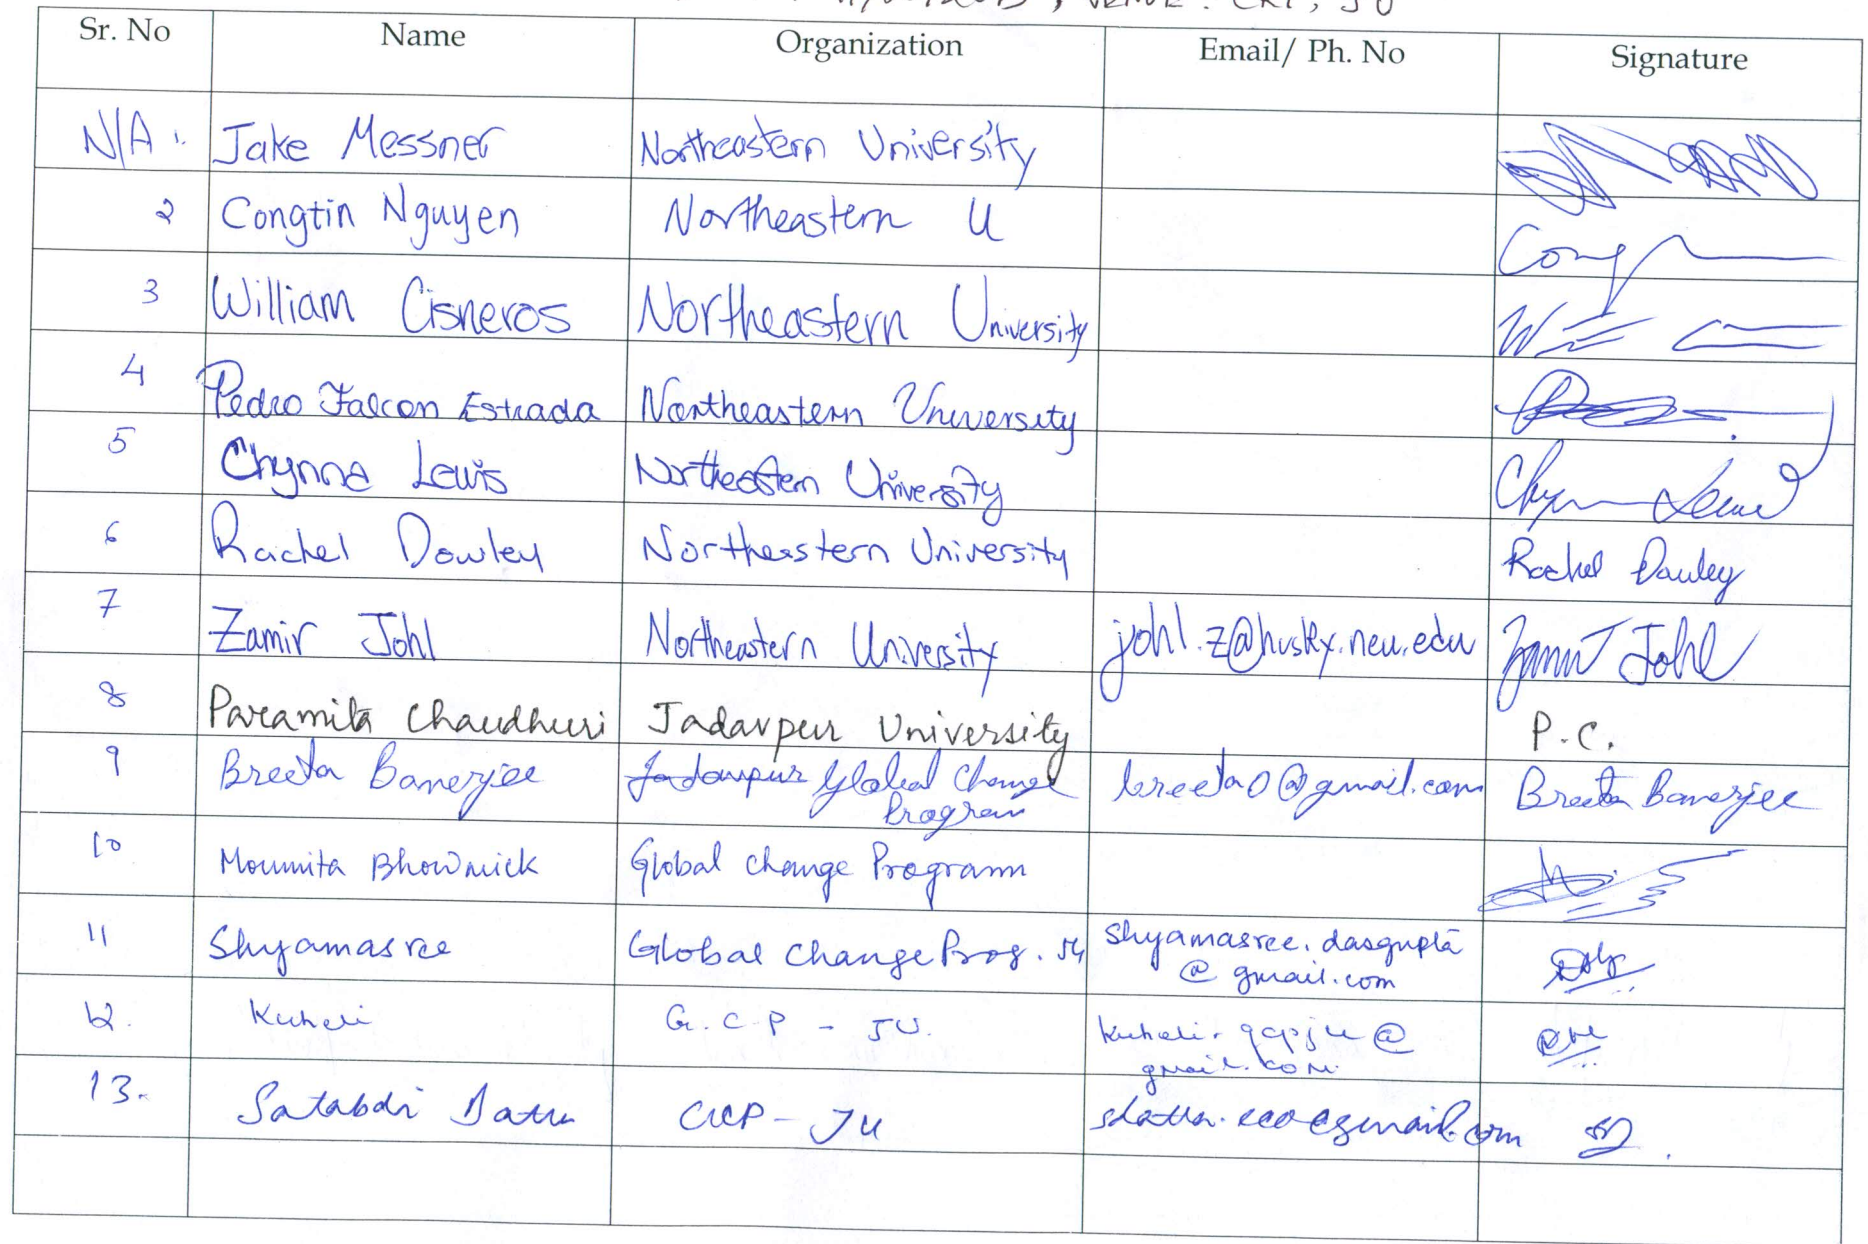 VENUE : CRT, JU
Sr. No Name Organization Email/ Ph. No Signature
N/A 1. Jake Messner Northeastern University
2 Congtin Nguyen Northeastern U Cong
3 William Cisneros Northeastern University
4 Pedro Falcon Estrada Northeastern University
5 Chynna Lewis Northeastern University Chyn Lewis
6 Rachel Dowley Northeastern University Rachel Dowley
7 Zamir Johl Northeastern University johl.z@husky.neu.edu Zamir Johl
8 Paramita Chaudhuri Jadavpur University P.C.
9 Breeta Banerjee Jadavpur Global Change breeta0@gmail.com Breeta Banerjee
Program
10 Moumita Bhowmick Global Change Programm
11 Shyamasree Global Change Prog. JU shyamasree.dasgupta
@ gmail.com
12. Kuheli G.C.P - JU. kuheli.gcpju@
gmail.com
13. Satabdi Datta GCP - JU sdatta.eco@gmail.com SD.